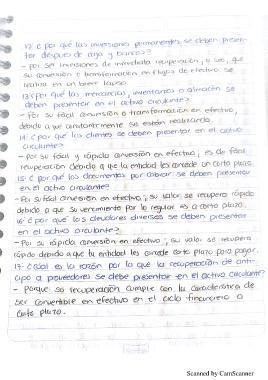 12.¿Por qué las inversiones permanentes se deben presen-
tar después de caja y bancos?
- Por ser inversiones de inmediata recuperación, o sea, que
su conversión o transformación en flujos de efectivo se
realiza en un breve lapso.
13.¿Por qué las mercancías, inventarios o almacén se
deben presentar en el activo circulante?
- Por su fácil conversión o transformación en efectivo,
debido a que constantemente se están realizando.
14.¿Por qué los clientes se deben presentar en el activo
circulante?
- Por su fácil y rápida conversión en efectivo, es de fácil
recuperación debido a que la entidad les concede un corto plazo.
15.¿Por qué los documentos por cobrar se deben presentar
en el activo circulante?
- Por su fácil conversión en efectivo, su valor se recupera rápido
debido a que su vencimiento por lo regular es a corto plazo.
16.¿Por qué los deudores diversos se deben presentar
en el activo circulante?
- Por su rápida conversión en efectivo, su valor se recupera
rápido debido a que la entidad les concede corto plazo para pagar.
17.¿Cuál es la razón por la que la recuperación de anti-
cipo a proveedores se debe presentar en el activo circulante?
- Porque su recuperación cumple con la característica de
ser convertible en efectivo en el ciclo financiero a
corto plazo.
Scanned by CamScanner